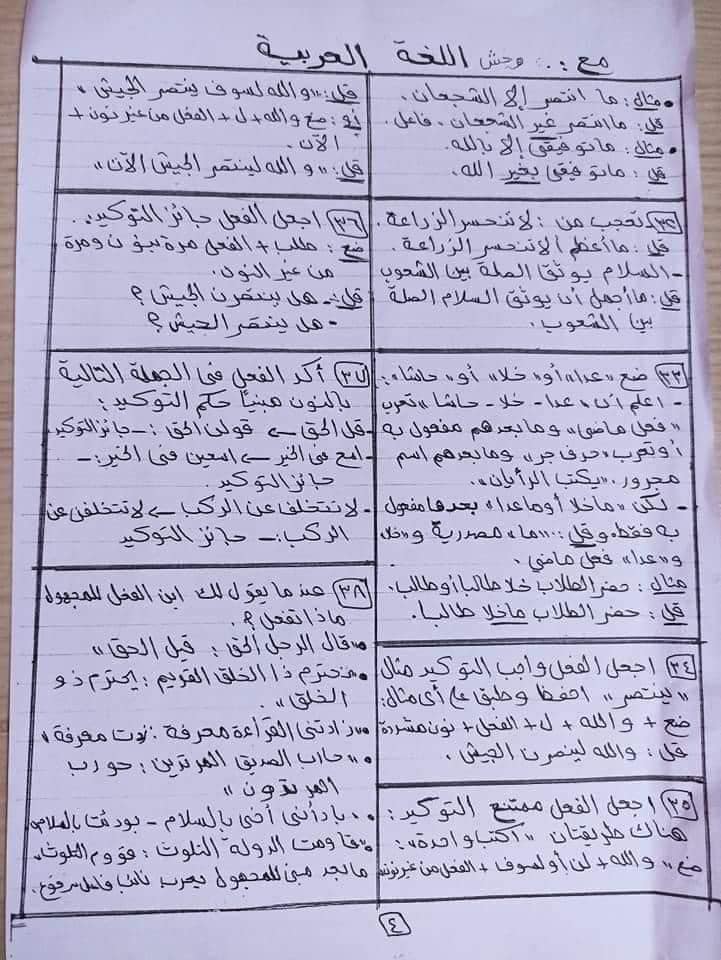 مع :. وحش اللغة العربية
• مثال: ما انتصر إلا الشجعان.
قل: ما انتصر غير الشجعان. فاعل.
• مثال: ما توفيقى إلا بالله.
قل: ما توفيقى بغير الله.
٣٢ تعجب من: لا تنحسر الزراعة.
قل: ما أعظم ألا تنحسر الزراعة.
- السلام يوثق الصلة بين الشعوب
قل: ما أجمل أن يوثق السلام الصلة
بين الشعوب.
٣٣ ضع "عدا" أو "خلا" أو "حاشا":
- اعلم أن "عدا - خلا - حاشا" تعرب
"فعل ماضى" وما بعدهم مفعول به
أو تعرب "حرف جر" وما بعدهم اسم
مجرور. "يكتب الرأيان".
- لكن "ما خلا أو ما عدا" بعدها مفعول
به فقط. وقل: "ما" مصدرية و"خلا
و"عدا" فعل ماضى.
مثال: حضر الطلاب خلا طالبا أو طالب.
قل: حضر الطلاب ما خلا طالبا.
٣٤ اجعل الفعل واجب التوكيد مثال
"ينتصر" احفظ وطبق على أى مثال:
ضع + والله + ل + الفعل + نون مشددة
قل: والله لينصرن الجيش.
٣٥ اجعل الفعل ممتنع التوكيد:
هناك طريقتان "اكتب واحدة":
ضع" والله + لن أو لسوف + الفعل من غير نون
قل: "والله لسوف ينتصر الجيش"
أو: ضع والله + ل + الفعل من غير نون +
الآن.
قل: "والله لينتصر الجيش الآن"
٣٦ اجعل الفعل جائز التوكيد:
ضع: طلب + الفعل مرة بنون ومرة
من غير النون.
قل: - هل ينتصرن الجيش؟
- هل ينتصر الجيش؟
٣٧ أكد الفعل فى الجملة التالية
بالنون مبيناً حكم التوكيد:
- قل الحق ← قولن الحق: - جائز التوكيد
- اسع فى الخير ← اسعين فى الخير: -
جائز التوكيد
- لا تتخلف عن الركب ← لا تتخلفن عن
الركب: - جائز التوكيد
٣٨ عندما يقول لك ابن الفعل للمجهول
ماذا تفعل؟
• "قال الرجل الحق: قيل الحق"
• نحترم ذا الخلق القويم: يُحترم ذو
الخلق".
• "زادتنى القراءة معرفة: زدت معرفة"
• "حارب الصديق المرتدين: حورب
المرتدون"
• بادأنى أخى بالسلام - بودئت بالسلام
• "قاومت الدولة التلوث: قووم التلوث"
ما بعد مبنى للمجهول يعرب نائب فاعل مرفوع.
٤